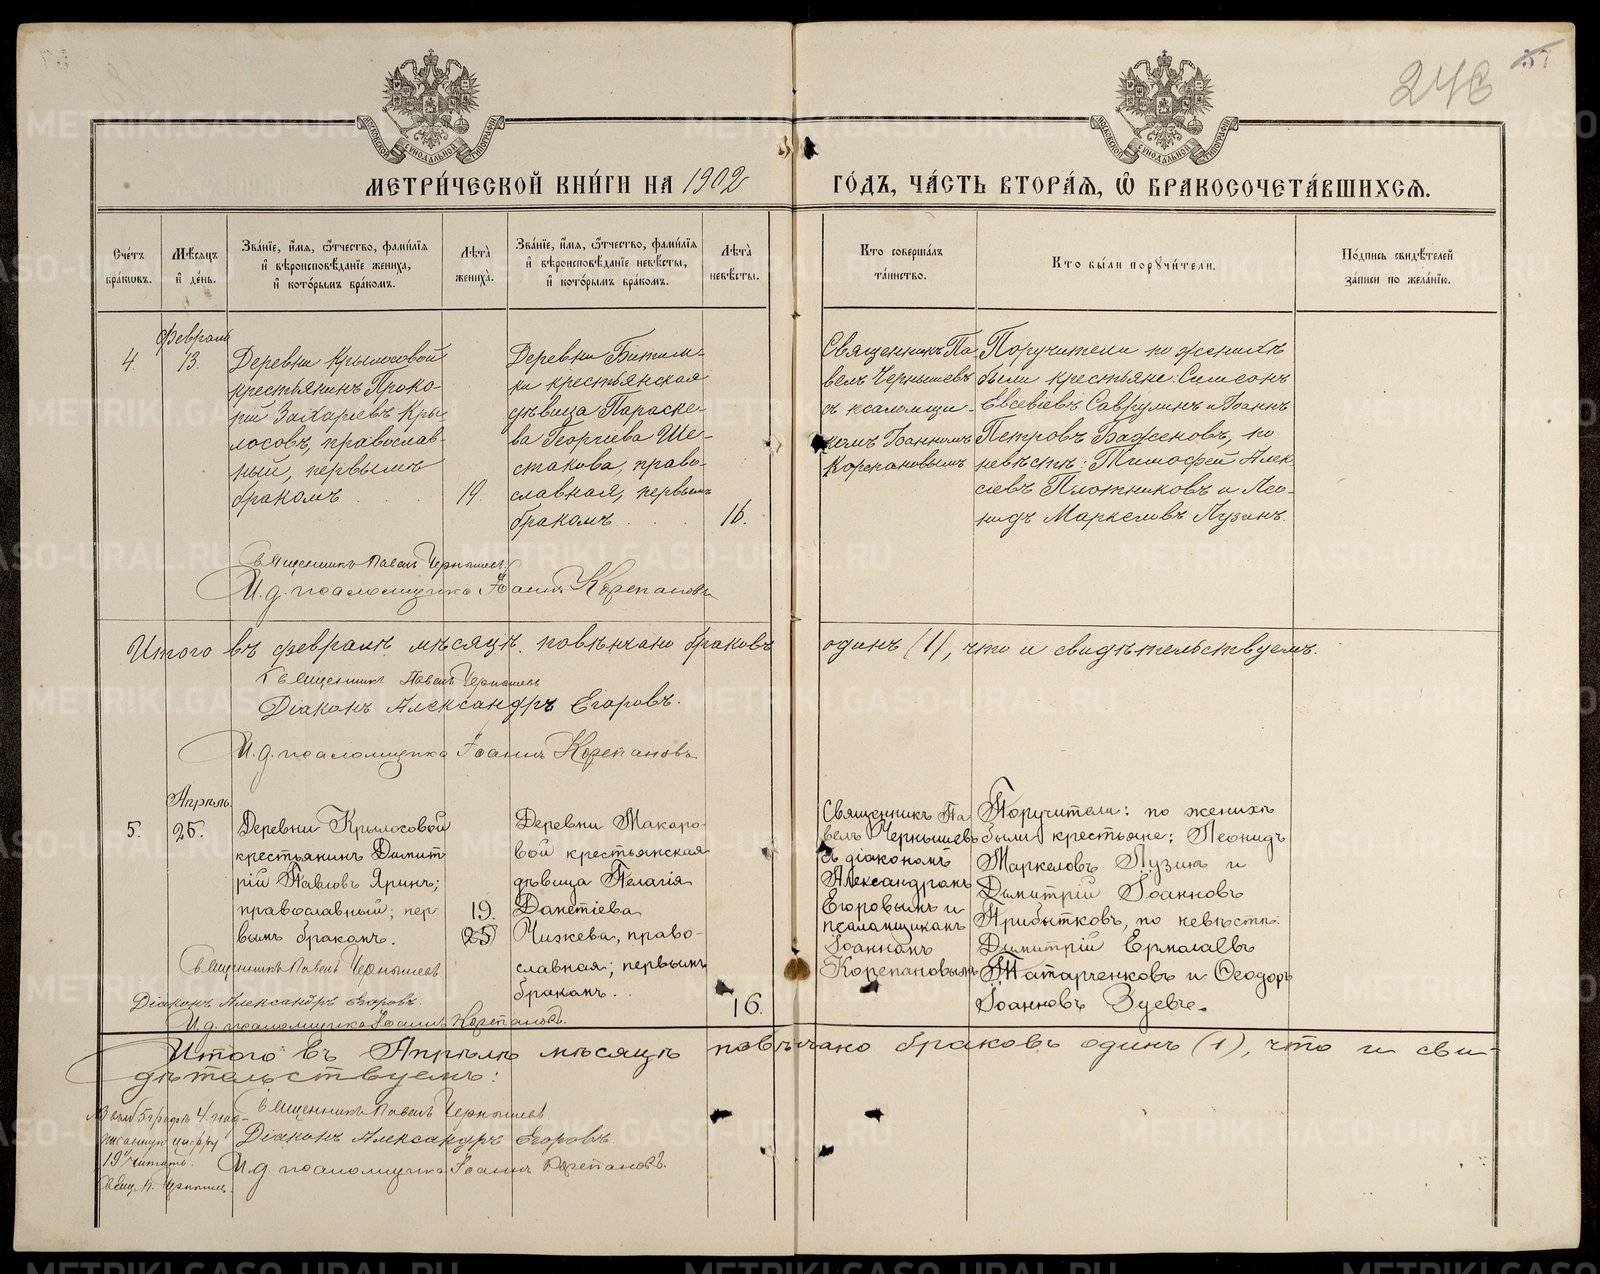 246
57
МОСКОВСКОЙ СѴНОДАЛЬНОЙ ТИПОГРАФІИ
МОСКОВСКОЙ СѴНОДАЛЬНОЙ ТИПОГРАФІИ
МЕТРИ́ЧЕСКОЙ КНИ́ГИ НА 1902
ГО́ДЪ, ЧА́СТЬ ВТОРА́Я, Ѽ БРАКОСОЧЕТА́ВШИХСЯ.
Сче́тъ
бра́ковъ.
Мѣ́сяцъ
и҆ де́нь.
Зва́нїе, и҆́мя, ѻ҆́тчество, фами́лїя
и҆ вѣроисповѣ́данїе жениха̀,
и҆ кото́рымъ бра́комъ.
Лѣта̀
жениха̀.
Зва́нїе, и҆́мя, ѻ҆́тчество, фами́лїя
и҆ вѣроисповѣ́данїе невѣ́сты,
и҆ кото́рымъ бра́комъ.
Лѣта̀
невѣ́сты.
Кто̀ соверша́лъ
та́инство.
Кто̀ бы́ли порꙋчи́тели.
По́дпись свидѣ́телей
за́писи по жела́нїю.
4.
Февраль
13.
Деревни Крылосовой
крестьянинъ Проко-
пій Захаріевъ Кры
лосовъ, православ-
ный, первымъ
бракомъ . . .
19.
Деревни Битим-
ки крестьянская
дѣвица Параске-
ва Георгіева Ше-
стакова, право-
славная, первымъ
бракомъ . . .
16.
Священникъ Па
велъ Чернышевъ
съ псаломщи-
комъ Іоанномъ
Корепановымъ
Поручители по женихѣ
были крестьяне: Симеонъ
Евсевіевъ Саврулинъ и Іоаннъ
Петровъ Баженовъ, по
невѣстѣ: Тимофей Алек
сіевъ Плотниковъ и Лео-
нидъ Маркеловъ Пузинъ.
Священникъ Павелъ Чернышевъ
И. д. псаломщика Іоаннъ Корепановъ
Итого въ февралѣ мѣсяцѣ повѣнчано браковъ одинъ (1), что и свидѣтельствуемъ.
Священникъ Павелъ Чернышевъ
Діаконъ Александръ Егоровъ.
И. д. псаломщика Іоаннъ Корепановъ
5.
Апрѣль
25.
Деревни Крылосовой
крестьянинъ Димит
рій Павловъ Яринъ;
православный; пер
вымъ бракомъ.
19.
(25)
Деревни Макаро-
вой крестьянская
дѣвица Пелагія
Данетіева
Чижева, право-
славная; первымъ
бракомъ. .
16.
Священникъ Па
велъ Чернышевъ
съ діакономъ
Александромъ
Егоровымъ и
псаломщикомъ
Іоанномъ
Корепановымъ
Поручители: по женихѣ
были крестьяне: Леонидъ
Маркеловъ Пузинъ и
Димитрій Іоанновъ
Прибытковъ, по невѣстѣ:
Димитрій Ермолаевъ
Татарченковъ и Ѳеодоръ
Іоанновъ Зуевъ.
Священникъ Павелъ Чернышевъ
Діаконъ Александръ Егоровъ.
И. д. псаломщика Іоаннъ Корепановъ.
Итого въ Апрѣлѣ мѣсяцѣ повѣнчано браковъ одинъ (1), что и сви-
дѣтельствуемъ:
Священникъ Павелъ Чернышевъ
Діаконъ Александръ Егоровъ.
И. д. псаломщика Іоаннъ Корепановъ.
5 графѣ 4. над-
писанную цифру
19 читать.
Свящ. П. Чернышевъ.
METRIKI.GASO-URAL.RU